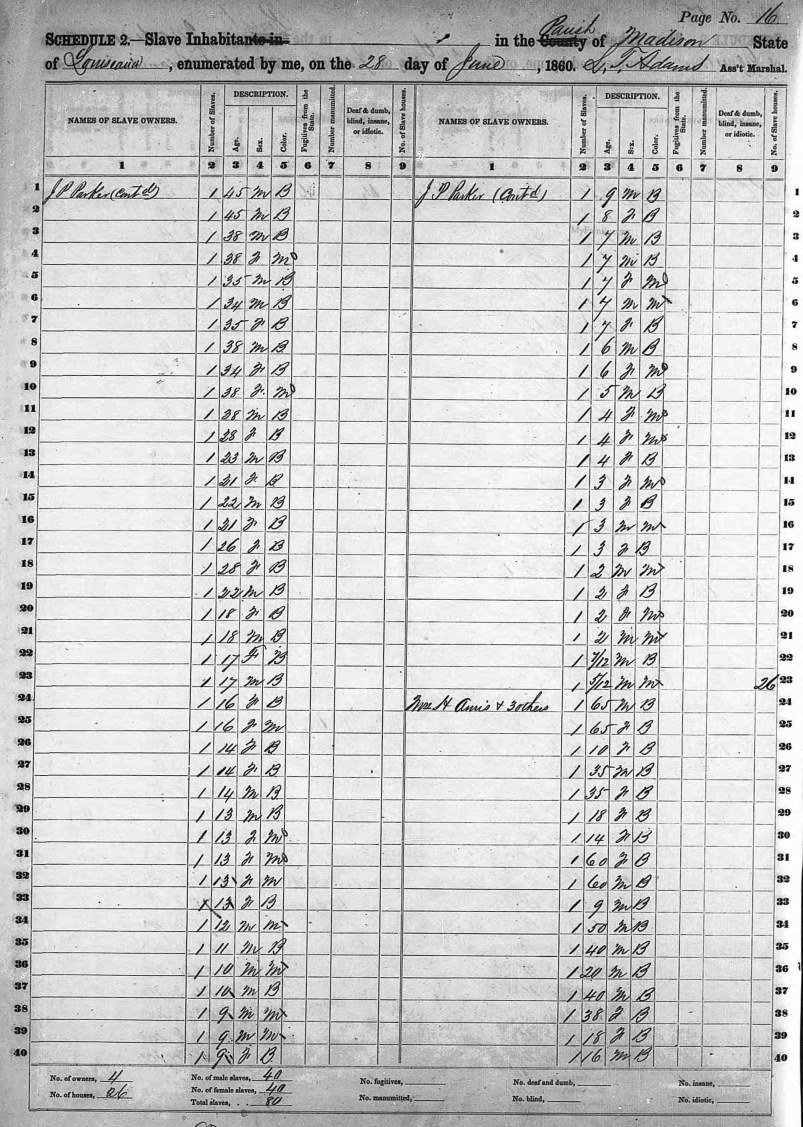 Page No. 16
SCHEDULE 2.—Slave Inhabitants in in the County Parish of Madison State
of Louisiana, enumerated by me, on the 28 day of June, 1860. S. T. Adams Ass't Marshal.
NAMES OF SLAVE OWNERS. Number of Slaves. DESCRIPTION. Age. Sex. Color. Fugitives from the State. Number manumitted. Deaf & dumb, blind, insane, or idiotic. No. of Slave houses. NAMES OF SLAVE OWNERS. Number of Slaves. DESCRIPTION. Age. Sex. Color. Fugitives from the State. Number manumitted. Deaf & dumb, blind, insane, or idiotic. No. of Slave houses.
1 2 3 4 5 6 7 8 9 1 2 3 4 5 6 7 8 9
1 J P Parker (Cont'd) 1 45 M B J P Parker (Cont'd) 1 9 M B 1
2 1 45 M B 1 8 F B 2
3 1 38 M B 1 7 M B 3
4 1 38 F M 1 7 M B 4
5 1 35 M B 1 7 F M 5
6 1 34 M B 1 7 M M 6
7 1 35 F B 1 7 F B 7
8 1 38 M B 1 6 M B 8
9 1 34 F B 1 6 F M 9
10 1 38 F M 1 5 M B 10
11 1 28 M B 1 4 F M 11
12 1 28 F B 1 4 F M 12
13 1 23 M B 1 4 F B 13
14 1 21 F B 1 3 F M 14
15 1 22 M B 1 3 F B 15
16 1 21 F B 1 3 M M 16
17 1 26 F B 1 3 F B 17
18 1 28 F B 1 2 M M 18
19 1 22 M B 1 2 F B 19
20 1 18 F B 1 2 F M 20
21 1 18 M B 1 2 M M 21
22 1 17 F B 1 7/12 M B 22
23 1 17 M B 1 5/12 M M 26 23
24 1 16 F B H Amis & 3 others 1 65 M B 24
25 1 16 F M 1 65 F B 25
26 1 14 F B 1 10 F B 26
27 1 14 F B 1 35 M B 27
28 1 14 M B 1 35 F B 28
29 1 13 M B 1 18 F B 29
30 1 13 F M 1 14 F B 30
31 1 13 F M 1 60 F B 31
32 1 13 F M 1 60 M B 32
33 1 13 F B 1 9 M B 33
34 1 12 M M 1 50 M B 34
35 1 11 M B 1 40 M B 35
36 1 10 M M 1 20 M B 36
37 1 10 M B 1 40 M B 37
38 1 9 M M 1 38 F B 38
39 1 9 M M 1 18 F B 39
40 1 9 F B 1 16 M B 40
No. of owners, 4 No. of male slaves, 40 No. fugitives, No. deaf and dumb, No. insane,
No. of houses, 26 No. of female slaves, 40 No. manumitted, No. blind, No. idiotic,
Total slaves, 80